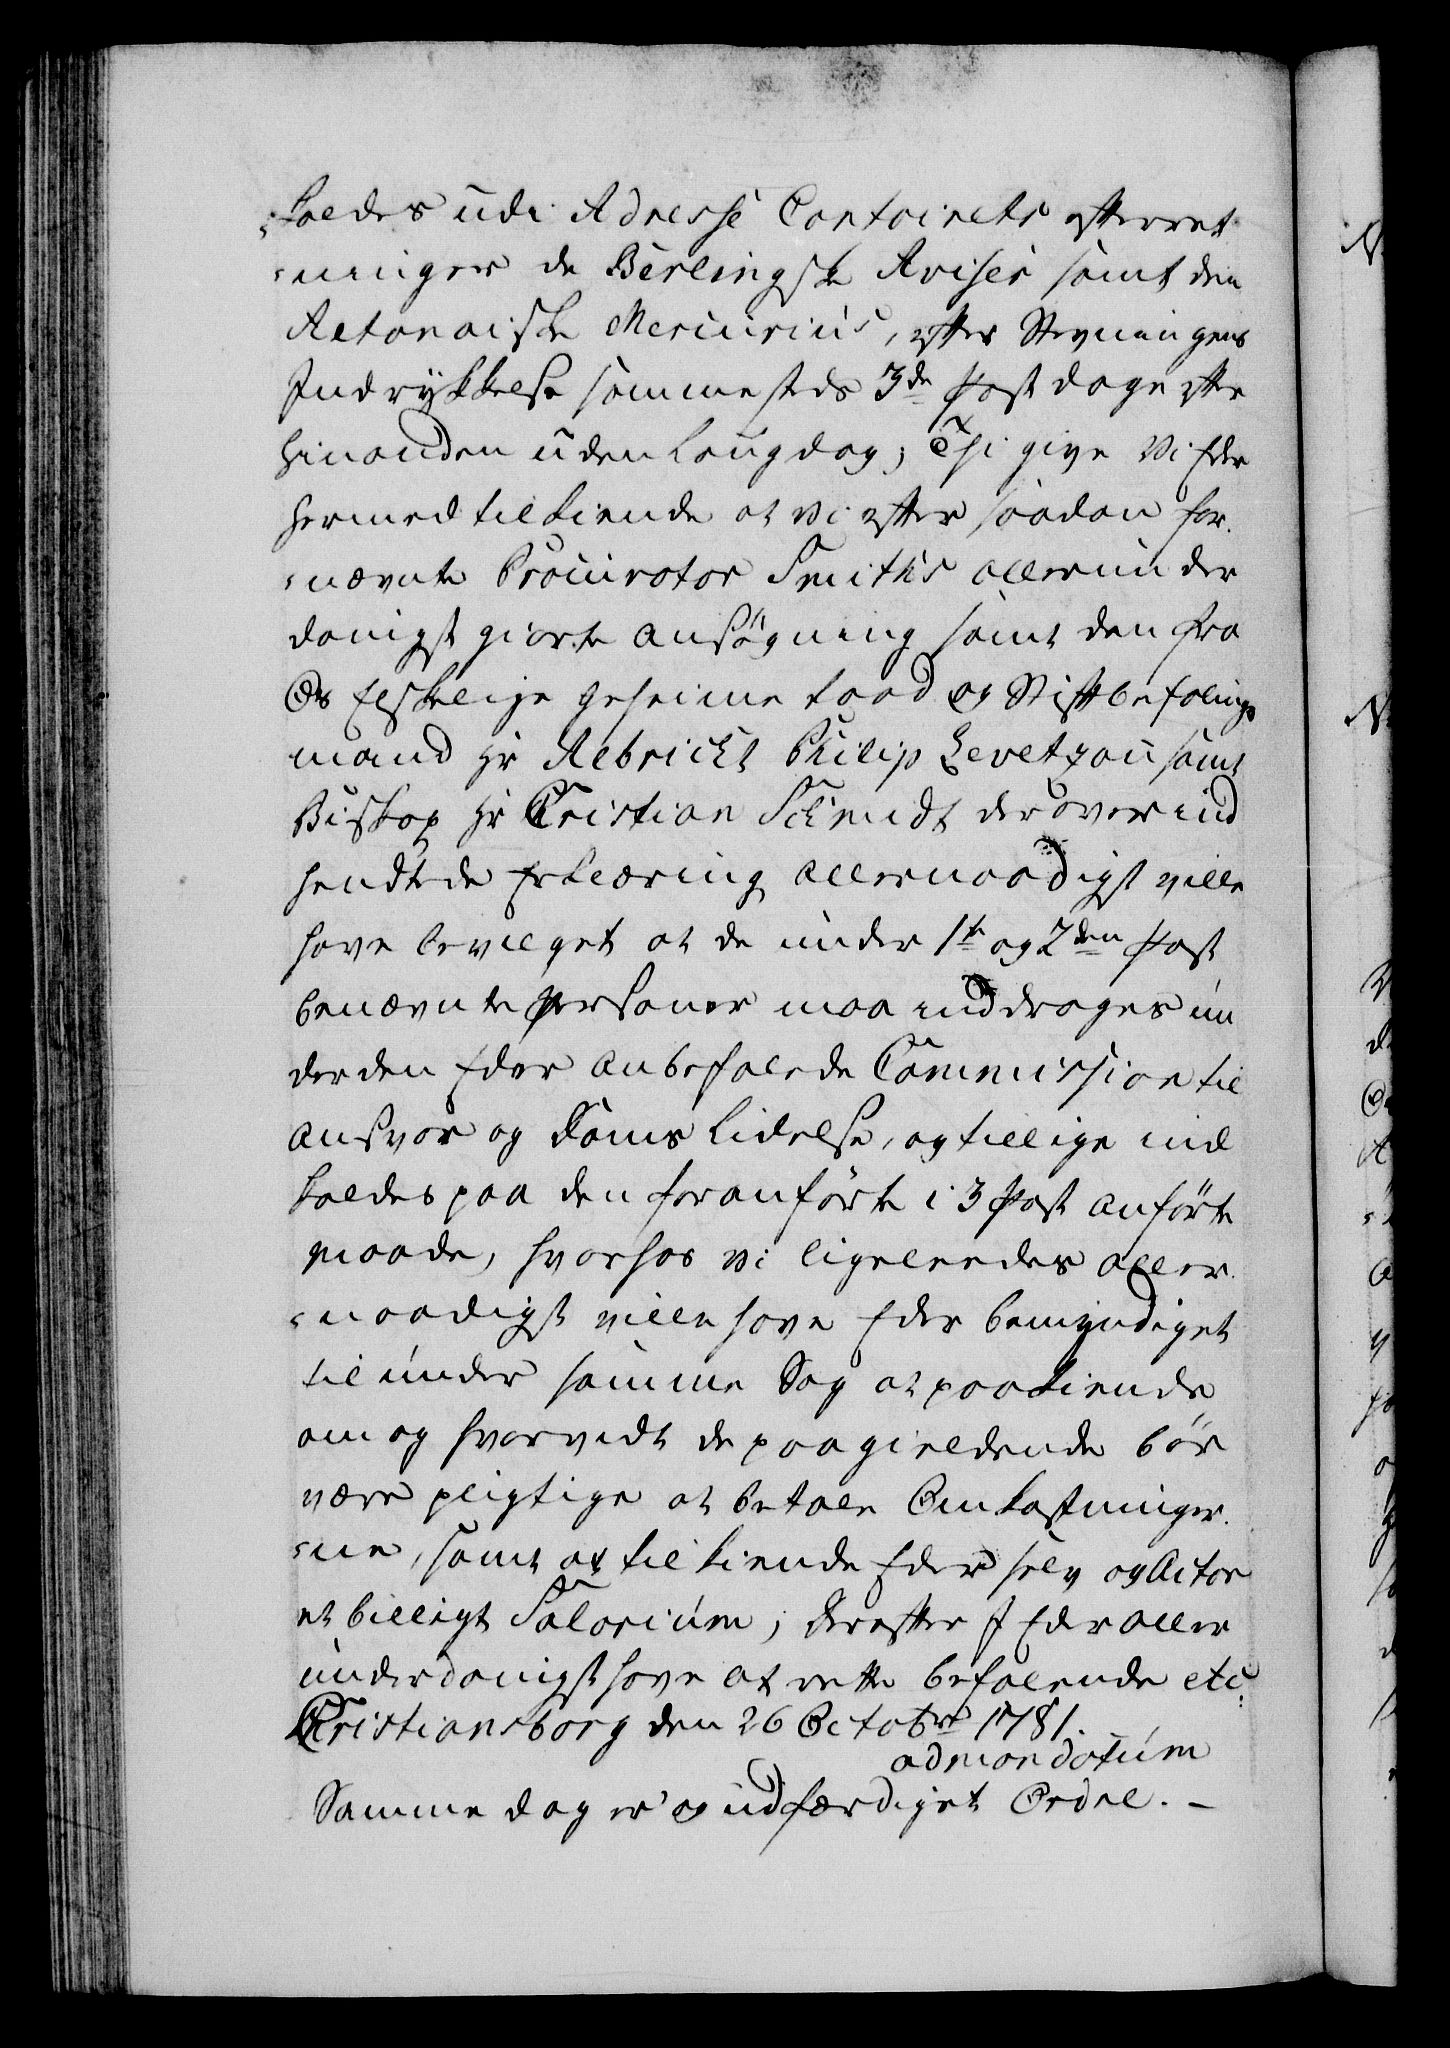 -kaldes udi Adresse Contoirets efterret
-ninger de Berlingske Aviser samt den
Altonaiske Mercurius, efter Stevningens
Indrykkelse sammesteds 3de Post dage efter
hinanden uden Laugdag; Thi give Vi Eder
hermed tilkiende at vi efter saadan for-
-nævnte Procurator Smiths allerunder
danigst giorte Ansøgning samt den fra
Os Elskelige Geheime Raad og Stiftbefalings
mand Hr Albricht Philip Levetzau samt
Biskop Hr Christian Schmidt derover ind
hendtede Erklæring allernaadigst ville
have bevilget at de under 1te og 2den Post
benævnte Personer maa inddrages un
der den Eder anbefalede Commission til
Ansvar og Doms Lidelse, og tillige ind
kaldes paa den foranførte i 3 Post anførte
maade, hvorhos vi ligeleedes aller-
-naadigst ville have Eder bemyndiget
til under samme Sag at paakiende
om og hvorvidt de paagieldende bør
være pligtige at betale Omkostninger-
-ne, samt at tilkiende Eder selv og Actor
et billigt Salarium; Derefter I Eder aller
underdanigst have at rette befalende etc:
Christiansborg den 26 Octobr 1781.
ad mandatum
Samme dag er og udfærdiget Ordre. -